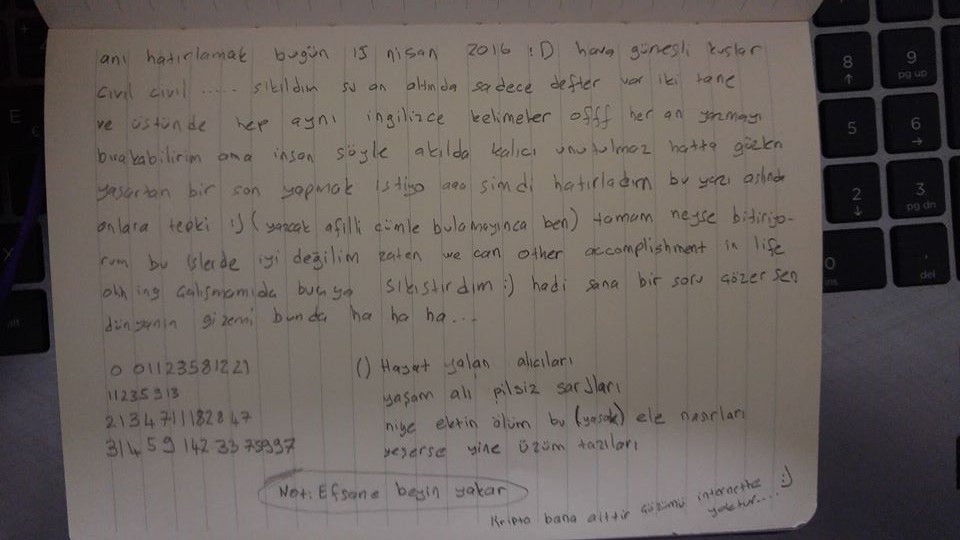 anı hatırlamak bugün 15 nisan 2016 :D hava güneşli kuşlar
civil civil ..... sıkıldım şu an altımda sadece defter var iki tane
ve üstünde hep aynı ingilizce kelimeler offf her an yazmayı
bırakabilirim ama insan şöyle akılda kalıcı unutulmaz hatta gözleri
yaşartan bir son yapmak istiyo aaa şimdi hatırladım bu yazı aslında
onlara tepki :) (yazcak afilli cümle bulamayınca ben) tamam neyse bitiriyo-
rum bu işlerde iyi değilim zaten we can other accomplishment in life
ohh ing çalışmamıda buraya sıkıştırdım :) hadi sana bir soru çözersen
dünyanın gizemi bunda ha ha ha...
0 01123581221
11235813
2134711182847
31459142337599 7
() Hayat yalan alıcıları
yaşam ali pilsiz şarjları
niye ektin ölüm bu (yasak) ele nasırları
yeşerse yine üzüm tazıları
Not: Efsane beyin yakar
Kripto bana aittir çözümü internette yoktur.... :)
8 9 pg up
5 6
2 3 pg dn
0 ins . del
E
X
alt